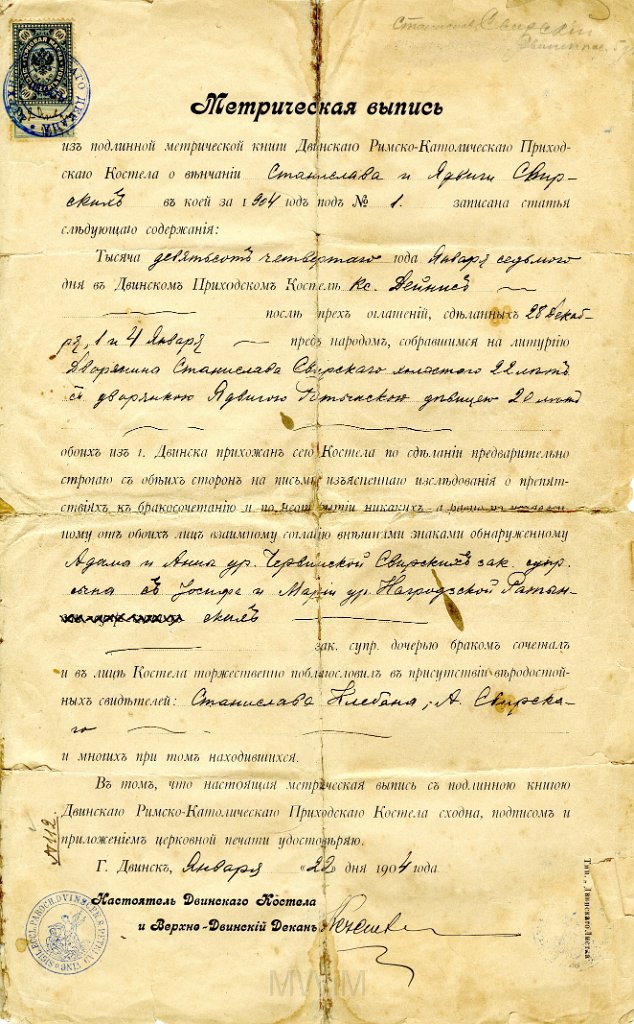 Станислав Свирскій
Метрическая выпись
изъ подлинной метрической книги Двинскаго Римско-Католическаго Приход-
скаго Костела о вѣнчаніи Станислава и Ядвиги Свир-
скихъ въ коей за 1904 годъ подъ № 1. записана статья
слѣдующаго содержанія:
Тысяча девятьсотъ четвертаго года Января седьмого
дня въ Двинскомъ Приходскомъ Костелѣ Кс. Дейнисъ
послѣ трехъ оглашеній, сдѣланныхъ 28 Декаб-
ря, 1 и 4 Января предъ народомъ, собравшимся на литургію
Дворянина Станислава Свирскаго холостого 22 лѣтъ
съ дворянкою Ядвигою Ратынскою дѣвицею 20 лѣтъ
обоихъ изъ г. Двинска прихожанъ сего Костела по сдѣланіи предварительно
строгаго съ обѣихъ сторонъ на письмѣ изъясненнаго изслѣдованія о препят-
ствіяхъ къ бракосочетанію и по неоткрытіи никакихъ а равно по
ному отъ обоихъ лицъ взаимному согласію внѣшними знаками обнаруженному
Адама и Анны ур. Червинской Свирскихъ зак. супр.
сына съ Іосифа и Маріи ур. Нагродзской Ратын-
скихъ
зак. супр. дочерью бракомъ сочеталъ
и въ лицѣ Костела торжественно поблагословилъ въ присутствіи вѣродостой-
ныхъ свидѣтелей: Станислава Клебана, А. Свирска-
го
и многихъ при томъ находившихся.
Въ томъ, что настоящая метрическая выпись съ подлинною книгою
Двинскаго Римско-Католическаго Приходскаго Костела сходна, подписомъ и
приложеніемъ церковной печати удостовѣряю.
№ 112
Г. Двинскъ, Января «22» дня 1904 года
Настоятель Двинскаго Костела
и Верхне-Двинскій Деканъ
Тип. „Двинскаго Листка"
MWM